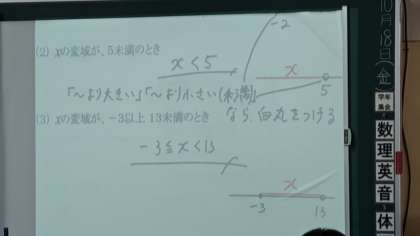 -2
(2) xの変域が、5未満のとき
x<5
x
5
「～より大きい」「～より小さい(未満)」
なら、白丸をつける
(3) xの変域が、-3以上13未満のとき
-3≦x<13
x
-3 13
10月18日(金)
数
理
英
音
体